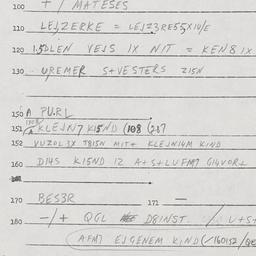 100 + / MATESES
110 LEJZERKE = LEJZ3RE55X10/E
120 1.5DLEN YEJS 1X NIT = KEN8 1X
130 UREMER S+VESTERS Z15N
150 A PU.RL
151 KLEJN7 K15ND (108 (217
152 VUZOL3X T815N MIT+ KLEJN14M KIND
160 D14S K15ND 12 A+S+LUFM7 G14VOR+
170 BES3R 171 —
180 —/+ QGL D81NST. / U+S+
AFM7 EJGENEM KIND (✓160152/QE